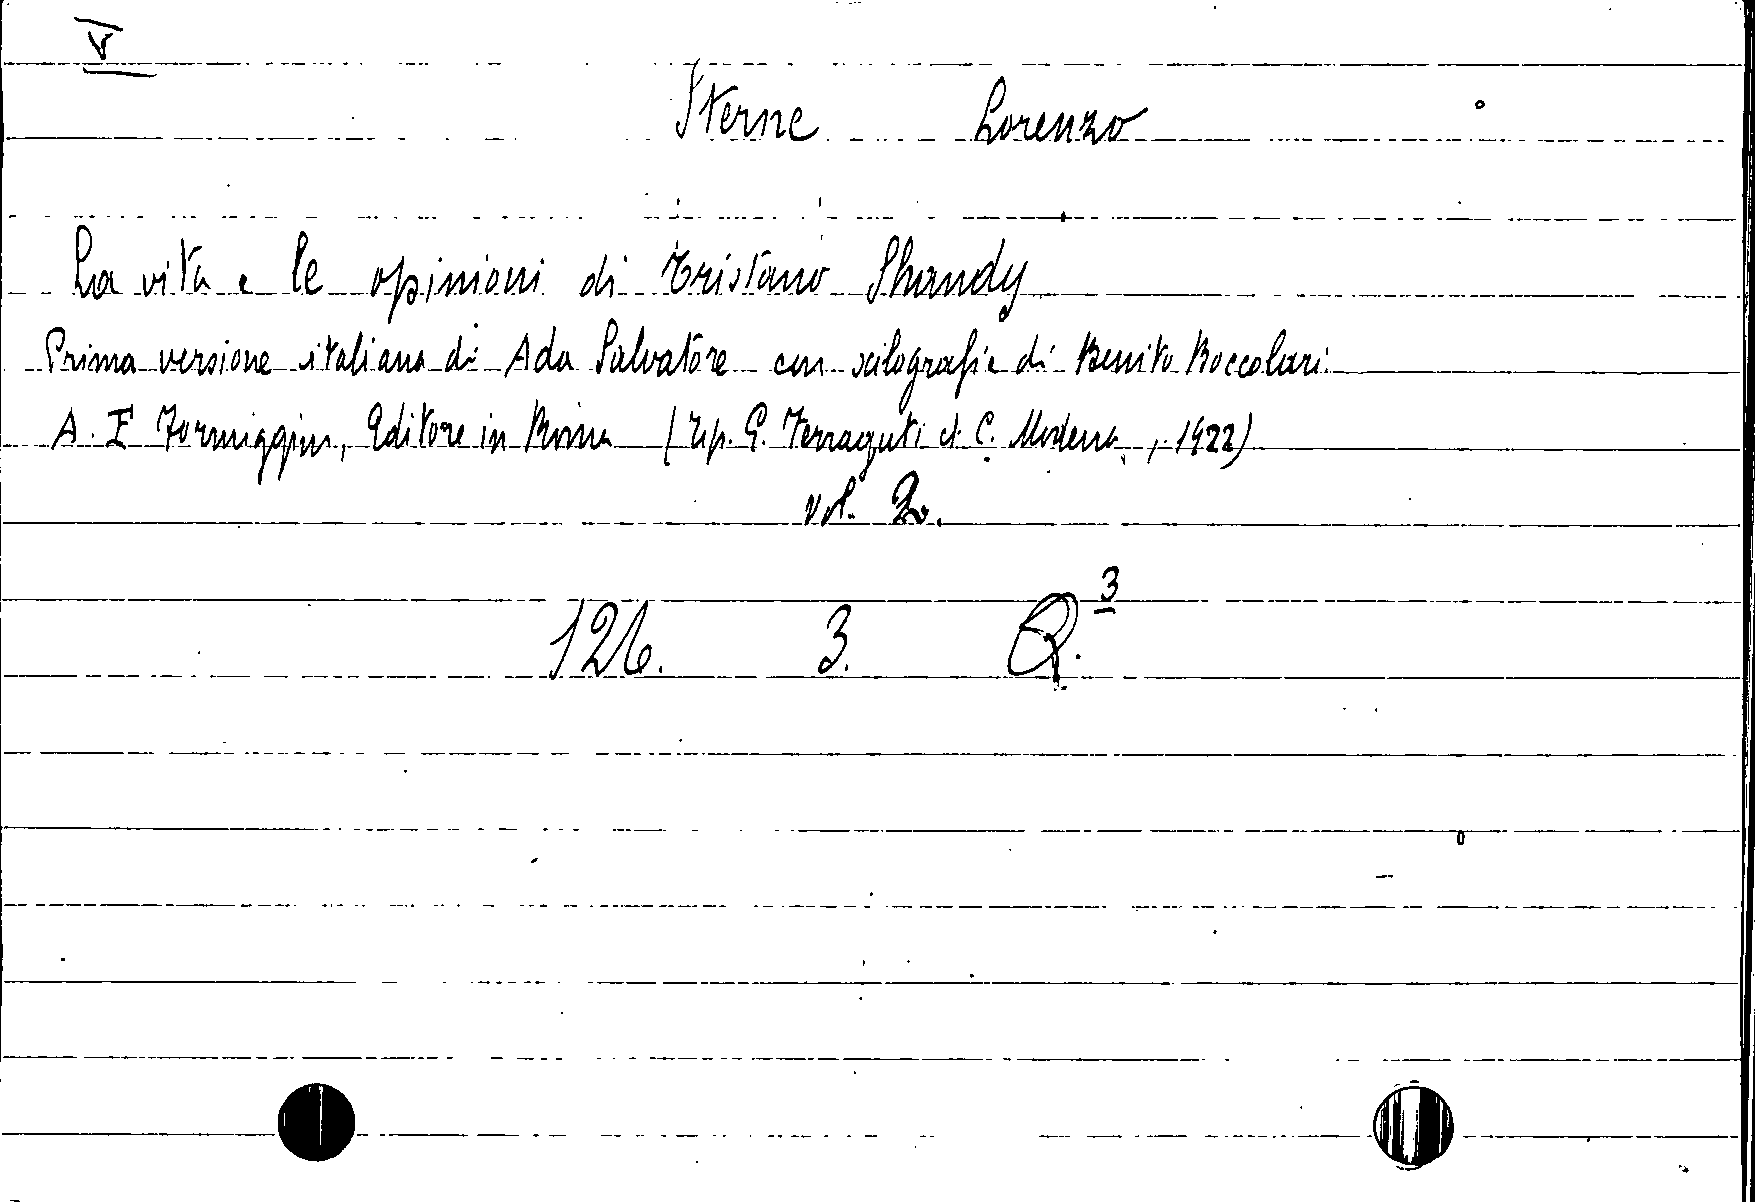 V
Sterne Lorenzo
La vita e le opinioni di Tristano Shandy
Prima versione italiana di Ada Salvatore con xilografie di Benito Boccolari
A. F Formiggini, Editore in Roma (Tip. G. Ferraguti e C. Modena, 1922)
vol. 2.
126. 3. Q.3